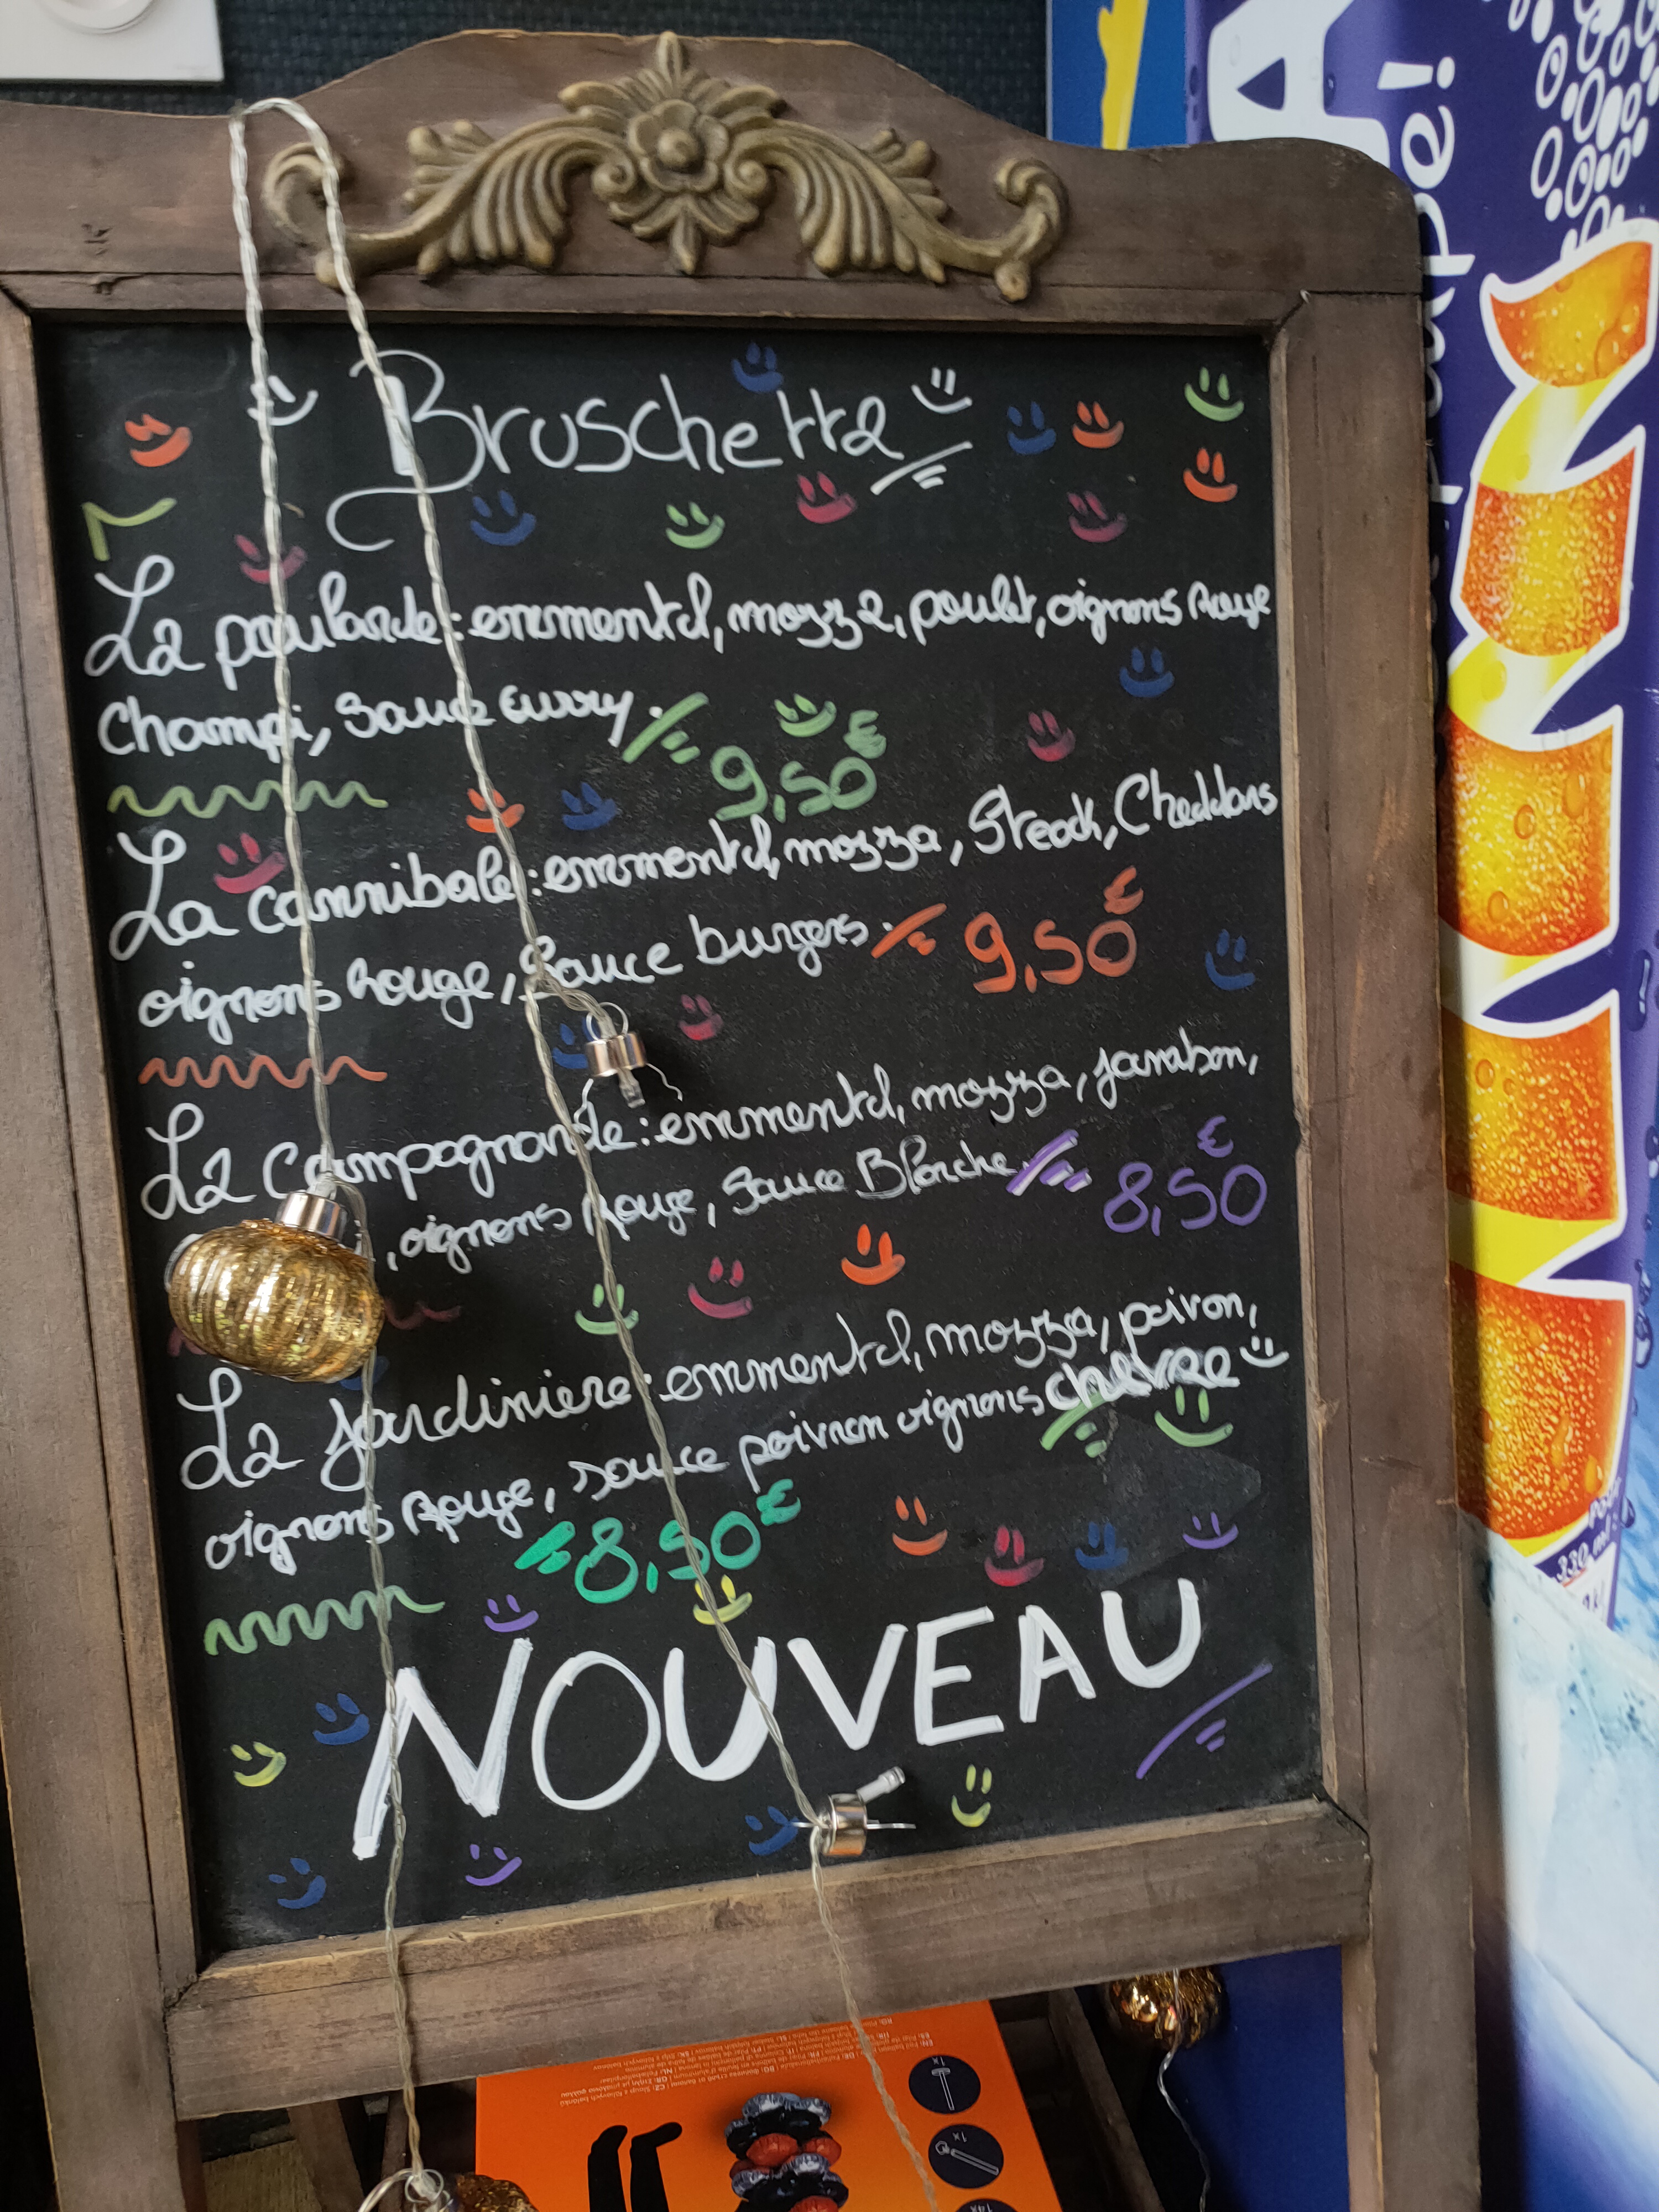 Bruschetta
La poularde: emmental, mozza, poulet, oignons Rouge
Champi, Sauce curry.
9,50€
La cannibale: emmental, mozza, Steack, Cheddars
oignons Rouge, Sauce burgers.
9,50€
La Campagnarde: emmental, mozza, jambon,
, oignons Rouge, Sauce Blanche
8,50€
La jardiniere: emmental, mozza, poivron,
oignons Rouge, sauce poivron oignons chèvre
8,50€
NOUVEAU
330 ml